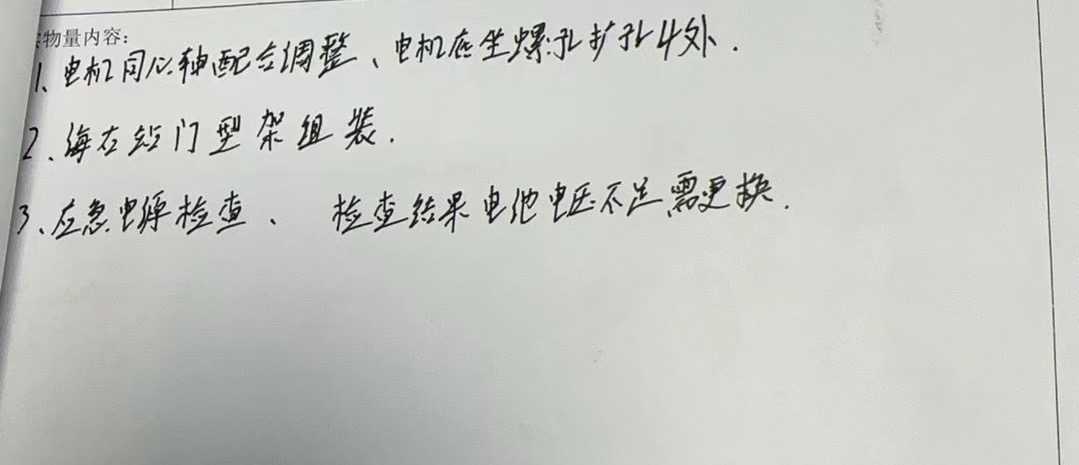 实物量内容:
1、电机同心轴配合调整、电机底坐螺孔扩孔4处.
2、海 门型架组装.
3、应急电源检查、 检查结果电池电压不足需更换.